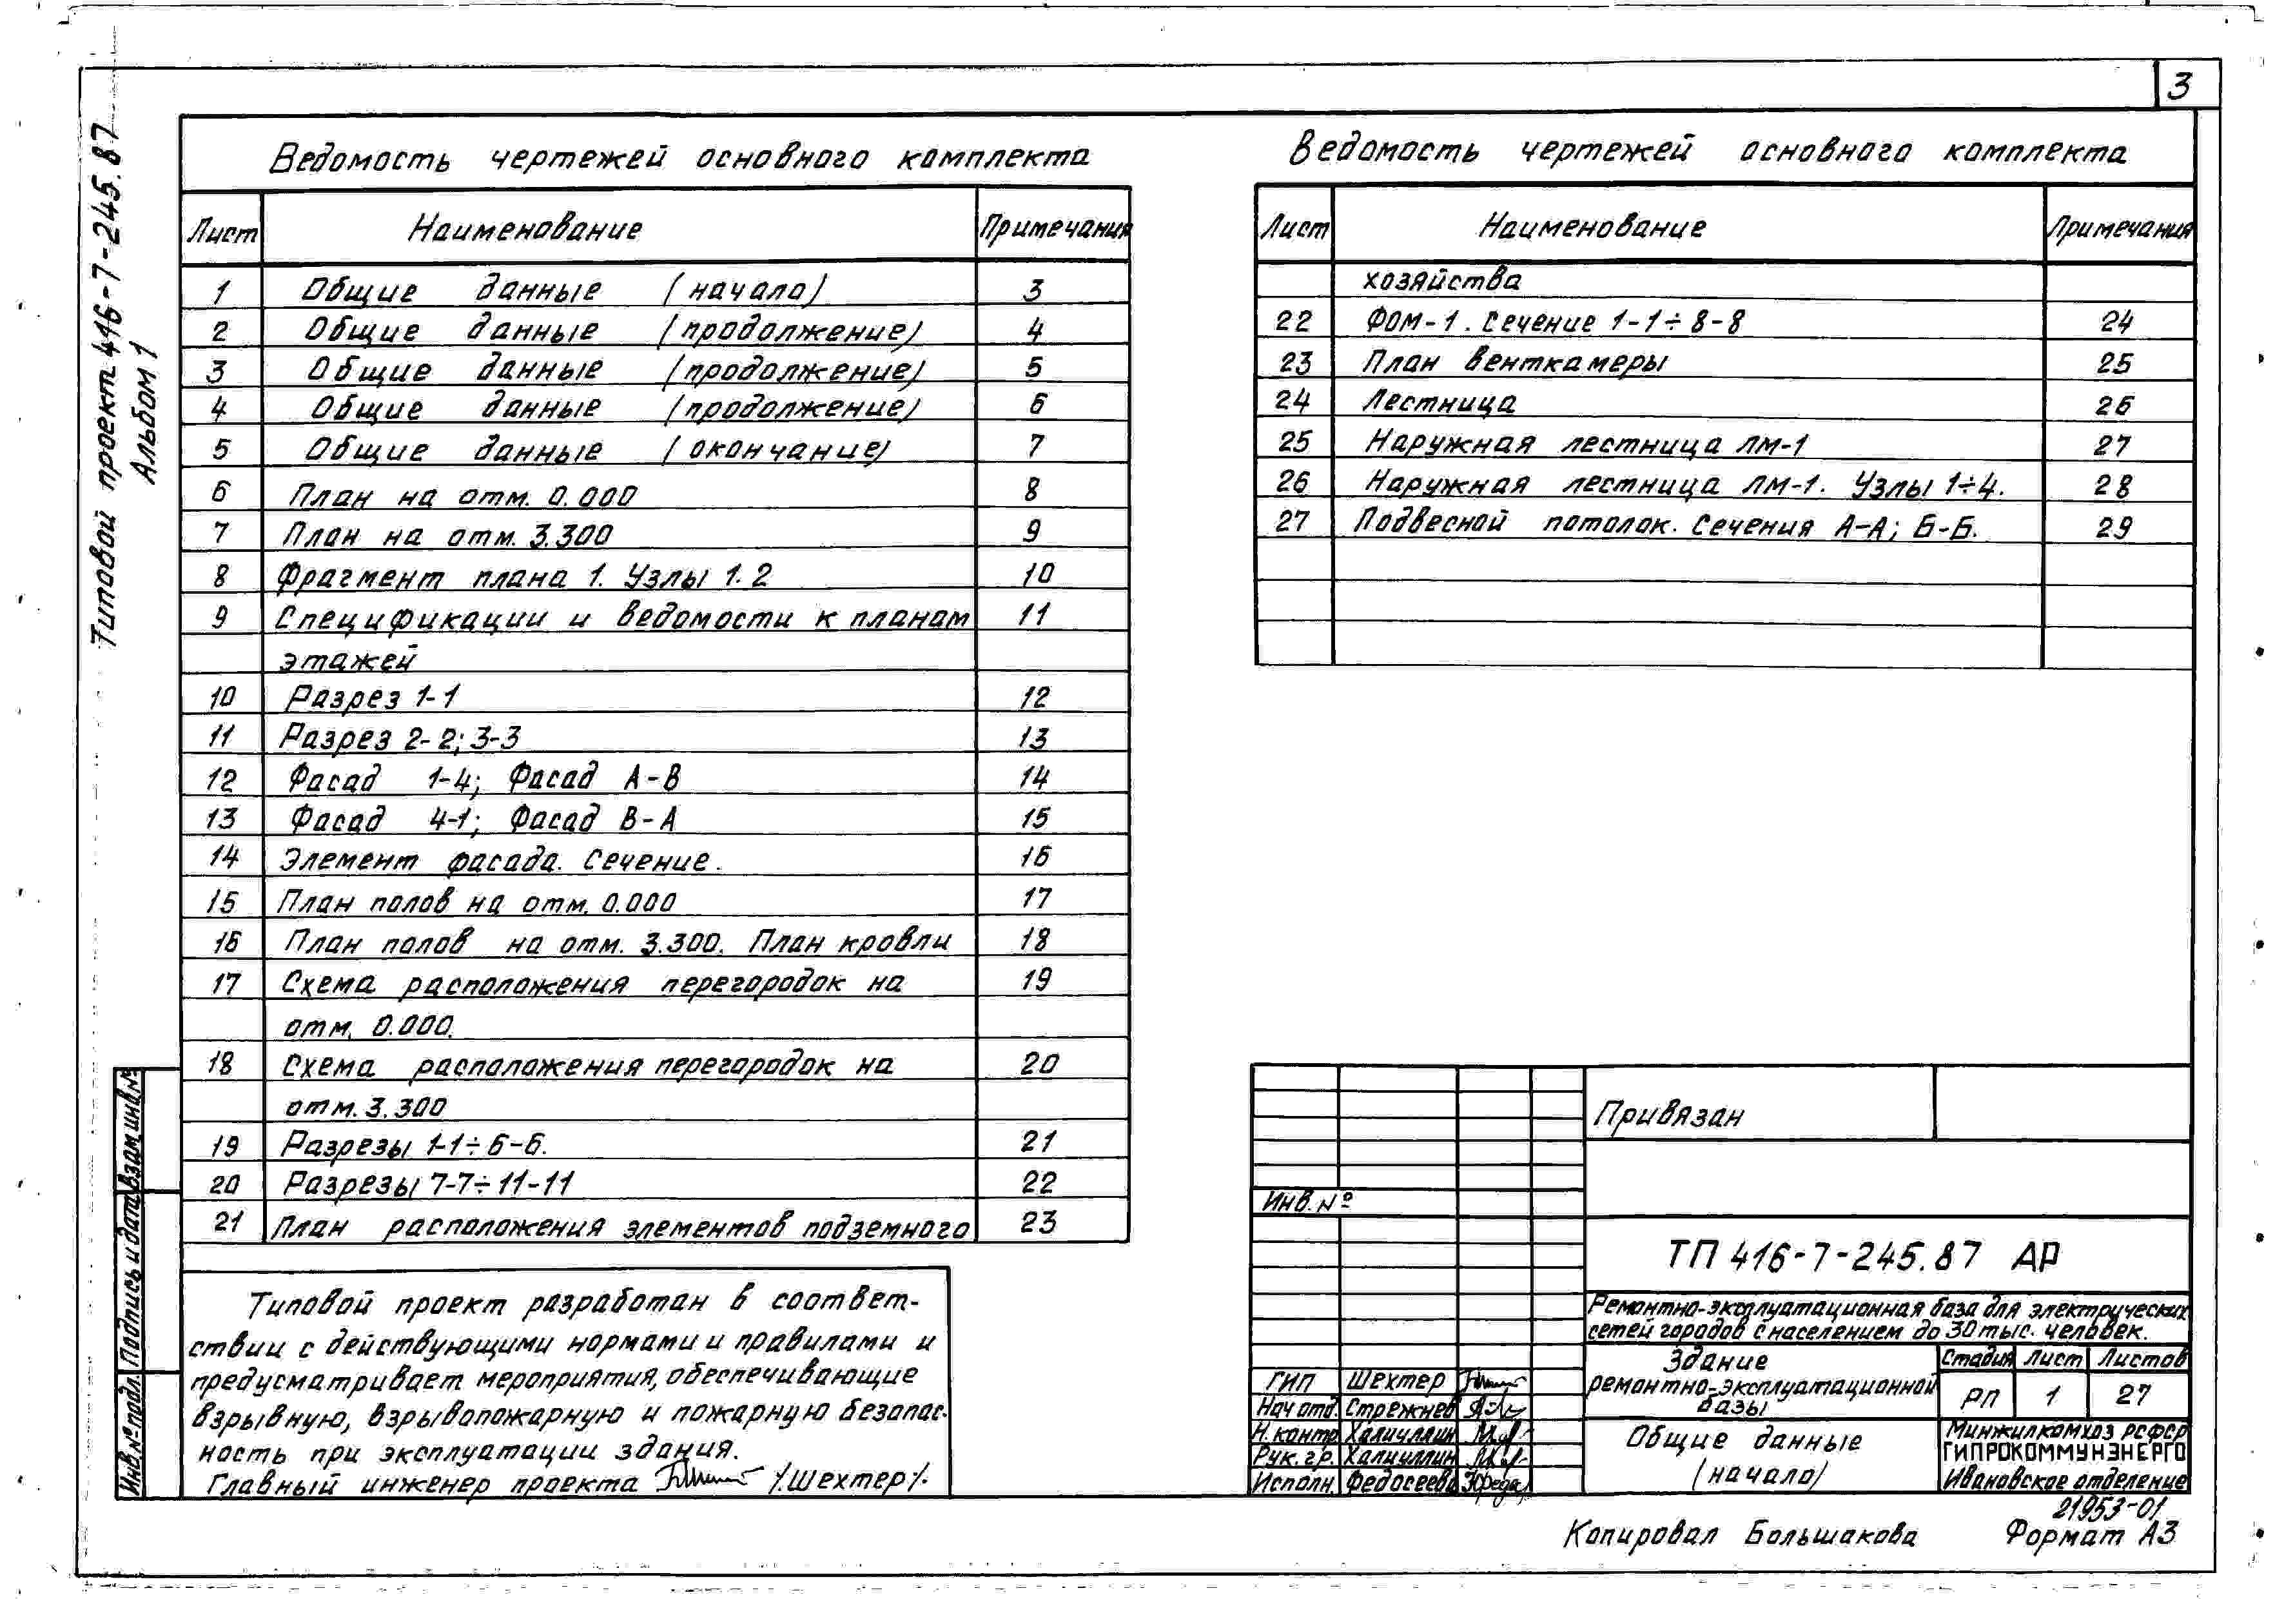 3
Типовой проект 416-7-245.87
Альбом 1
Ведомость чертежей основного комплекта
Лист Наименование Примечания
1 Общие данные (начало) 3
2 Общие данные (продолжение) 4
3 Общие данные (продолжение) 5
4 Общие данные (продолжение) 6
5 Общие данные (окончание) 7
6 План на отм. 0.000 8
7 План на отм. 3.300 9
8 Фрагмент плана 1. Узлы 1.2 10
9 Спецификации и ведомости к планам 11
этажей
10 Разрез 1-1 12
11 Разрез 2-2; 3-3 13
12 Фасад 1-4; Фасад А-В 14
13 Фасад 4-1; Фасад В-А 15
14 Элемент фасада. Сечение. 16
15 План полов на отм. 0.000 17
16 План полов на отм. 3.300. План кровли 18
17 Схема расположения перегородок на 19
отм. 0.000.
18 Схема расположения перегородок на 20
отм. 3.300
19 Разрезы 1-1÷6-6. 21
20 Разрезы 7-7÷11-11 22
21 План расположения элементов подземного 23
Ведомость чертежей основного комплекта
Лист Наименование Примечания
хозяйства
22 ФОМ-1. Сечение 1-1÷8-8 24
23 План венткамеры 25
24 Лестница 26
25 Наружная лестница ЛМ-1 27
26 Наружная лестница ЛМ-1. Узлы 1÷4. 28
27 Подвесной потолок. Сечения А-А; Б-Б. 29
Типовой проект разработан в соответ-
ствии с действующими нормами и правилами и
предусматривает мероприятия, обеспечивающие
взрывную, взрывопожарную и пожарную безопас-
ность при эксплуатации здания.
Главный инженер проекта /Шехтер/.
Взам.инв.№
Подпись и дата
Инв.№подл.
Привязан
Инв.№
ТП 416-7-245.87 АР
Ремонтно-эксплуатационная база для электрических
сетей городов с населением до 30 тыс. человек.
Здание
ремонтно-эксплуатационной
базы
Стадия Лист Листов
РП 1 27
ГИП Шехтер
Нач отд. Стрежнев
Н.контр Халиуллин
Рук.гр. Халиуллин
Исполн. Федосеева
Общие данные
(начало)
Минжилкомхоз РСФСР
ГИПРОКОММУНЭНЕРГО
Ивановское отделение
21953-01
Копировал Большакова Формат А3